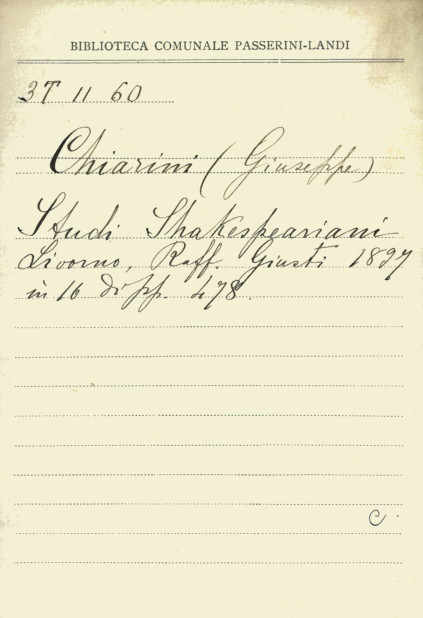 BIBLIOTECA COMUNALE PASSERINI-LANDI
3T II 60
Chiarini (Giuseppe)
Studi Shakespeariani
Livorno, Raff. Giusti 1897
in 16 di pp. 478.
C.